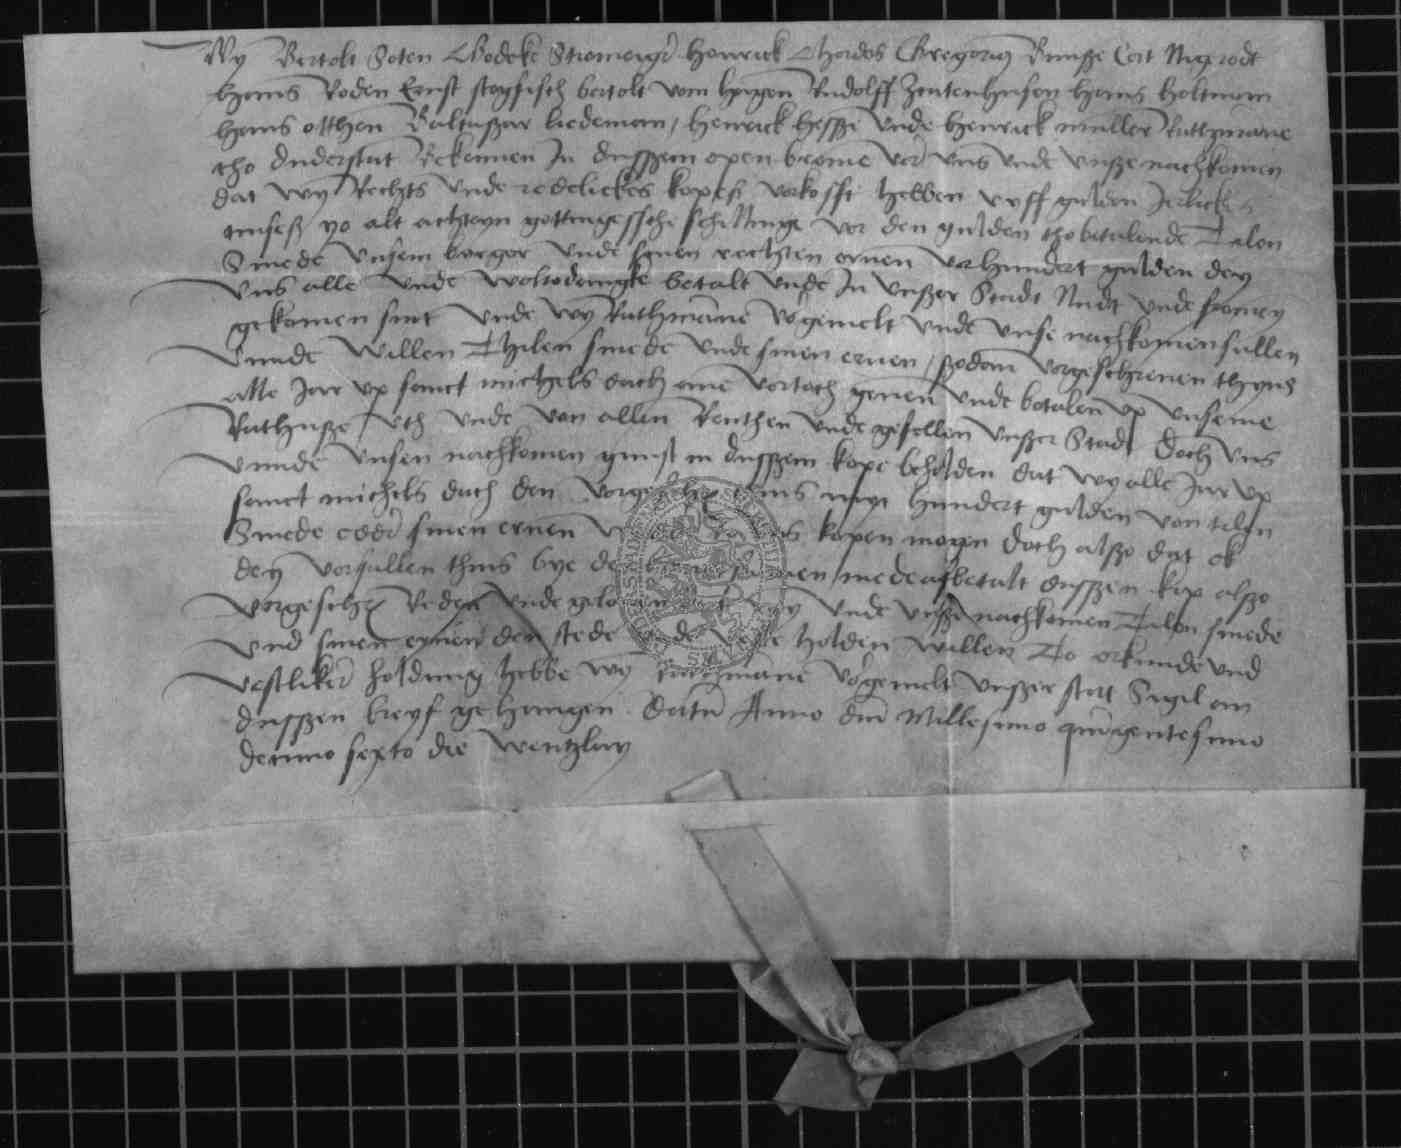 Wy Bertolt Soten Godeke Stromeiger Henrick Chordes Gregorius Runsze Cort Nigerodt
Hans Roden Ernst stogfisch bertolt vom hagen Rudolff Zentenhusen hans holtman
hans otthen Baltaszar liedeman / henrick hesße unde henrick muller Ratszmane
tho duderstat Bekennen In dusszem open breive vor uns unde unsze nachkomen
dat wy Rechts unde redelickes kopes vorkofft hebben vyff gulden Jerlickes
tinses yo alt achteyn gottingessche schillinge vor den gulden tho betalende Tilen
Smede unsem borger unde synen rechten ernen vor hundert gulden dey
uns alle unde wol to dancke betalt unde In unszer Stadt Nudt unde fromen
gekomen sint unde wy Rathmane vorgemelt unde unse nachkomen sullen
unnde willen Thilen smede unde sinen ernen / szodan vorgeschrenen thyns
alle Jar up sanct michels dach ane vortoch genen unde betalen up unseme
Rathusze / uth unde von allen Renthen unde gefellen unszer Stadt Doch uns
unnde unsen nachkomen gunst in dusszem kope beholden dat wy alle Jar up
sanct michels dach den tins myt hundert gulden von tilen
Smede edder sinen ernen kopen mogen doch alszo dat ok
dey vorfallen thins bye mede afbetalt dusszen kop alszo
vorgeschr Reden unde wy unde unsze nachkomen Tilen smede
und sinen ernen den stede holden willen To orkunde und
vestliker holdung hebbe wy Ratszmane vorgemelt unszer statt Sigil an
dusszen breyf gehangen datum Anno dni Millesimo quingentesimo
decimo sexto die Wentzlay